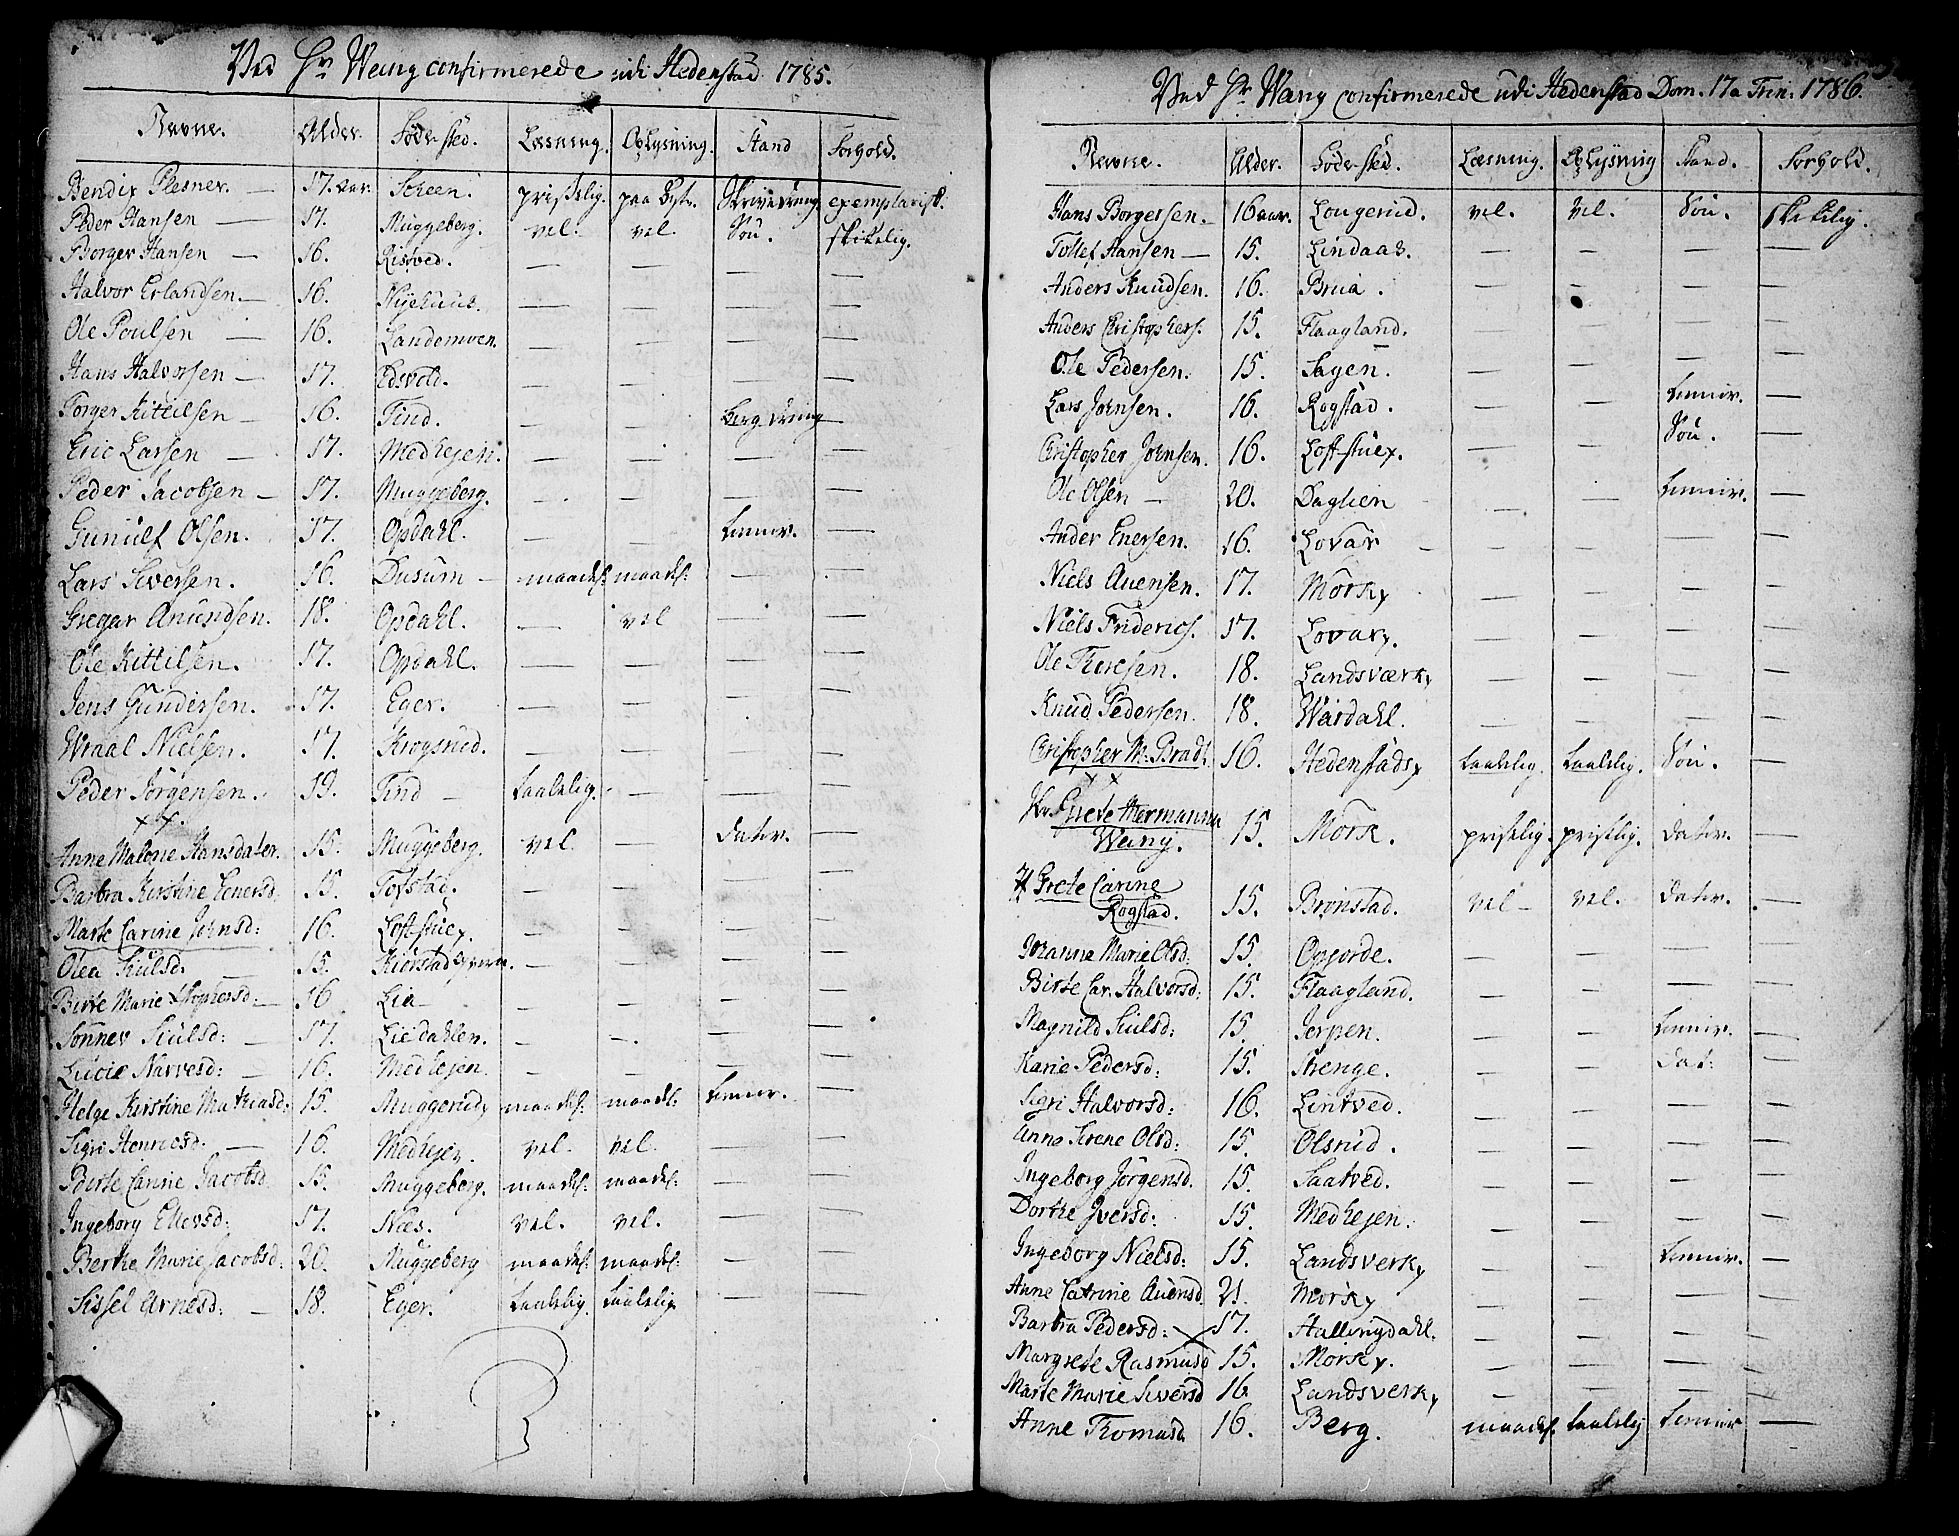 Ved Hr Wang confirmerede udi Hedenstad 1785.
Navne. Alder. Födested. Læsning. Oplysning. Stand Forhold.
Bendix Plesner. — 17. aar. Scheen. priselig. paa beste. exemplarisk.
Peder Hansen — 17. Muggeberg. vel. vel. Sön. skikelig.
Borger Hansen — 16. Ristved. — — — —
Halvor Erlandsen. — 16. Nyehuus. — — — —
Ole Poulsen — 16. Landemoen. — — — —
Hans Halvorsen — 17. Edsvold. — — — —
Torger Kittilsen — 16. Tind. — — —
Eric Larsen — 17. Medhejen. — — — —
Peder Jacobsen — 17. Muggeberg. — — — —
Gunulf Olsen. 17. Opdahl. — — tienner. —
Lars Siversen. 16. Dusum — maadel: maadel: — —
Gregar Anundsen. 18. Opdahl. — vel — —
Ole Kittilsen. 17. Opdahl. — — — —
Jens Gundersen. 17. Eger. — — — —
Wraal Nielsen. 17. Krogsrud. — — — —
Peder Jörgensen. 19. Tind — taalelig. — — —
Anne Malene Hansdater. 15. Muggeberg. vel. — dater. —
Barbra Kirstine Enersd. 15. Tofstad. — — — —
Marte Carine Johnsd: 16. Loftstuey. — — — —
Olea Siulsd. — 15. Kiörstad — — — —
Birte Marie Xstophersd: — 16 Lia — — — — —
Sönnev Siulsd: — 17. Liedahlen. — — — —
Lucie Narvesd: — 16. Medhejen. — — — —
Helge Kirstine Mathiasd: 15. Muggerudy maadel: maadel: tienner. —
Sigri Henricsd. — 16. Medhejen. vel. vel. — —
Birte Carine Jacobsd. 15. Muggeberg. maadel: maadel: — —
Ingeborg Ellevsd: 17. Næs. vel. vel. — —
Berthe Marie Jacobsd: 20. Muggeberg maadel: maadel: — —
Sissel Arnesd: — 18. Eger. taalelig. taalelig. — —
Ved Hr Wang confirmerede udi Hedenstad Dom. 17 a Trin. 1786.
Navne. Alder. Födested. Læsning. Oplysning Stand. Forhold.
Hans Borgersen. — 16 aar. Lougerud. vel. vel. Sön. skikelig.
Tollef Hansen — 15. Lindaas. — — — —
Anders Knudsen. 16. Brua. — — — —
Anders Christophers: 15. Flaagland. — — — —
Ole Pedersen. 15. Sagen. — — — —
Lars Johnsen. 16. Rogstad. — — tienner. —
Christopher Johnsen. 16. Loftstuey. — — Sön. —
Ole Olsen — 20. Daglien — — tienner. —
Ander Enersen. 16. Lovar — — — — —
Niels Auensen. 17. Mörky — — — —
Niels Friderics. 17. Lovary. — — — —
Ole Thoresen. 18. Landsværky — — — —
Knud Pedersen. 18. Wårdahl. — — — —
Christopher M: Bradt. 16. Hedenstady taalelig. taalelig. Sön. —
Grete Hermanna
Wang. 15. Mörk. priselig. priselig. dater. —
Grete Carine
Rogstad. 15. Brönstad. vel — vel. dater. —
Johanne Marie Olsd: 15. Opjorde. — — — —
Birte Car. Halvorsd: 15. Flaagland. — — — —
Magnild Siulsd: 15. Jerpen. — — tienner. —
Karie Pedersd: 15. Strenge. — — dat: —
Sigri Halvorsd: 16. Lintved. — — — —
Anne Sirene Olsd: 15. Olsrud. — — — —
Ingeborg Jörgensd. 15. Saatved. — — — —
Dorthe Iversd: 15. Medhejen. — — — —
Ingeborg Nielsd: 15. Landsverky — — tienner. —
Anne Catrine Auensd. 21. Mörky — — — —
Barbra Pedersd: 17. Hallingdahl. — — — —
Margrete Rasmusd 15. Mörky. — — — —
Marte Marie Siversd 16 Landsverky — — — —
Anne Thomasd. 16. Berg. maadel. taalelig tienner —